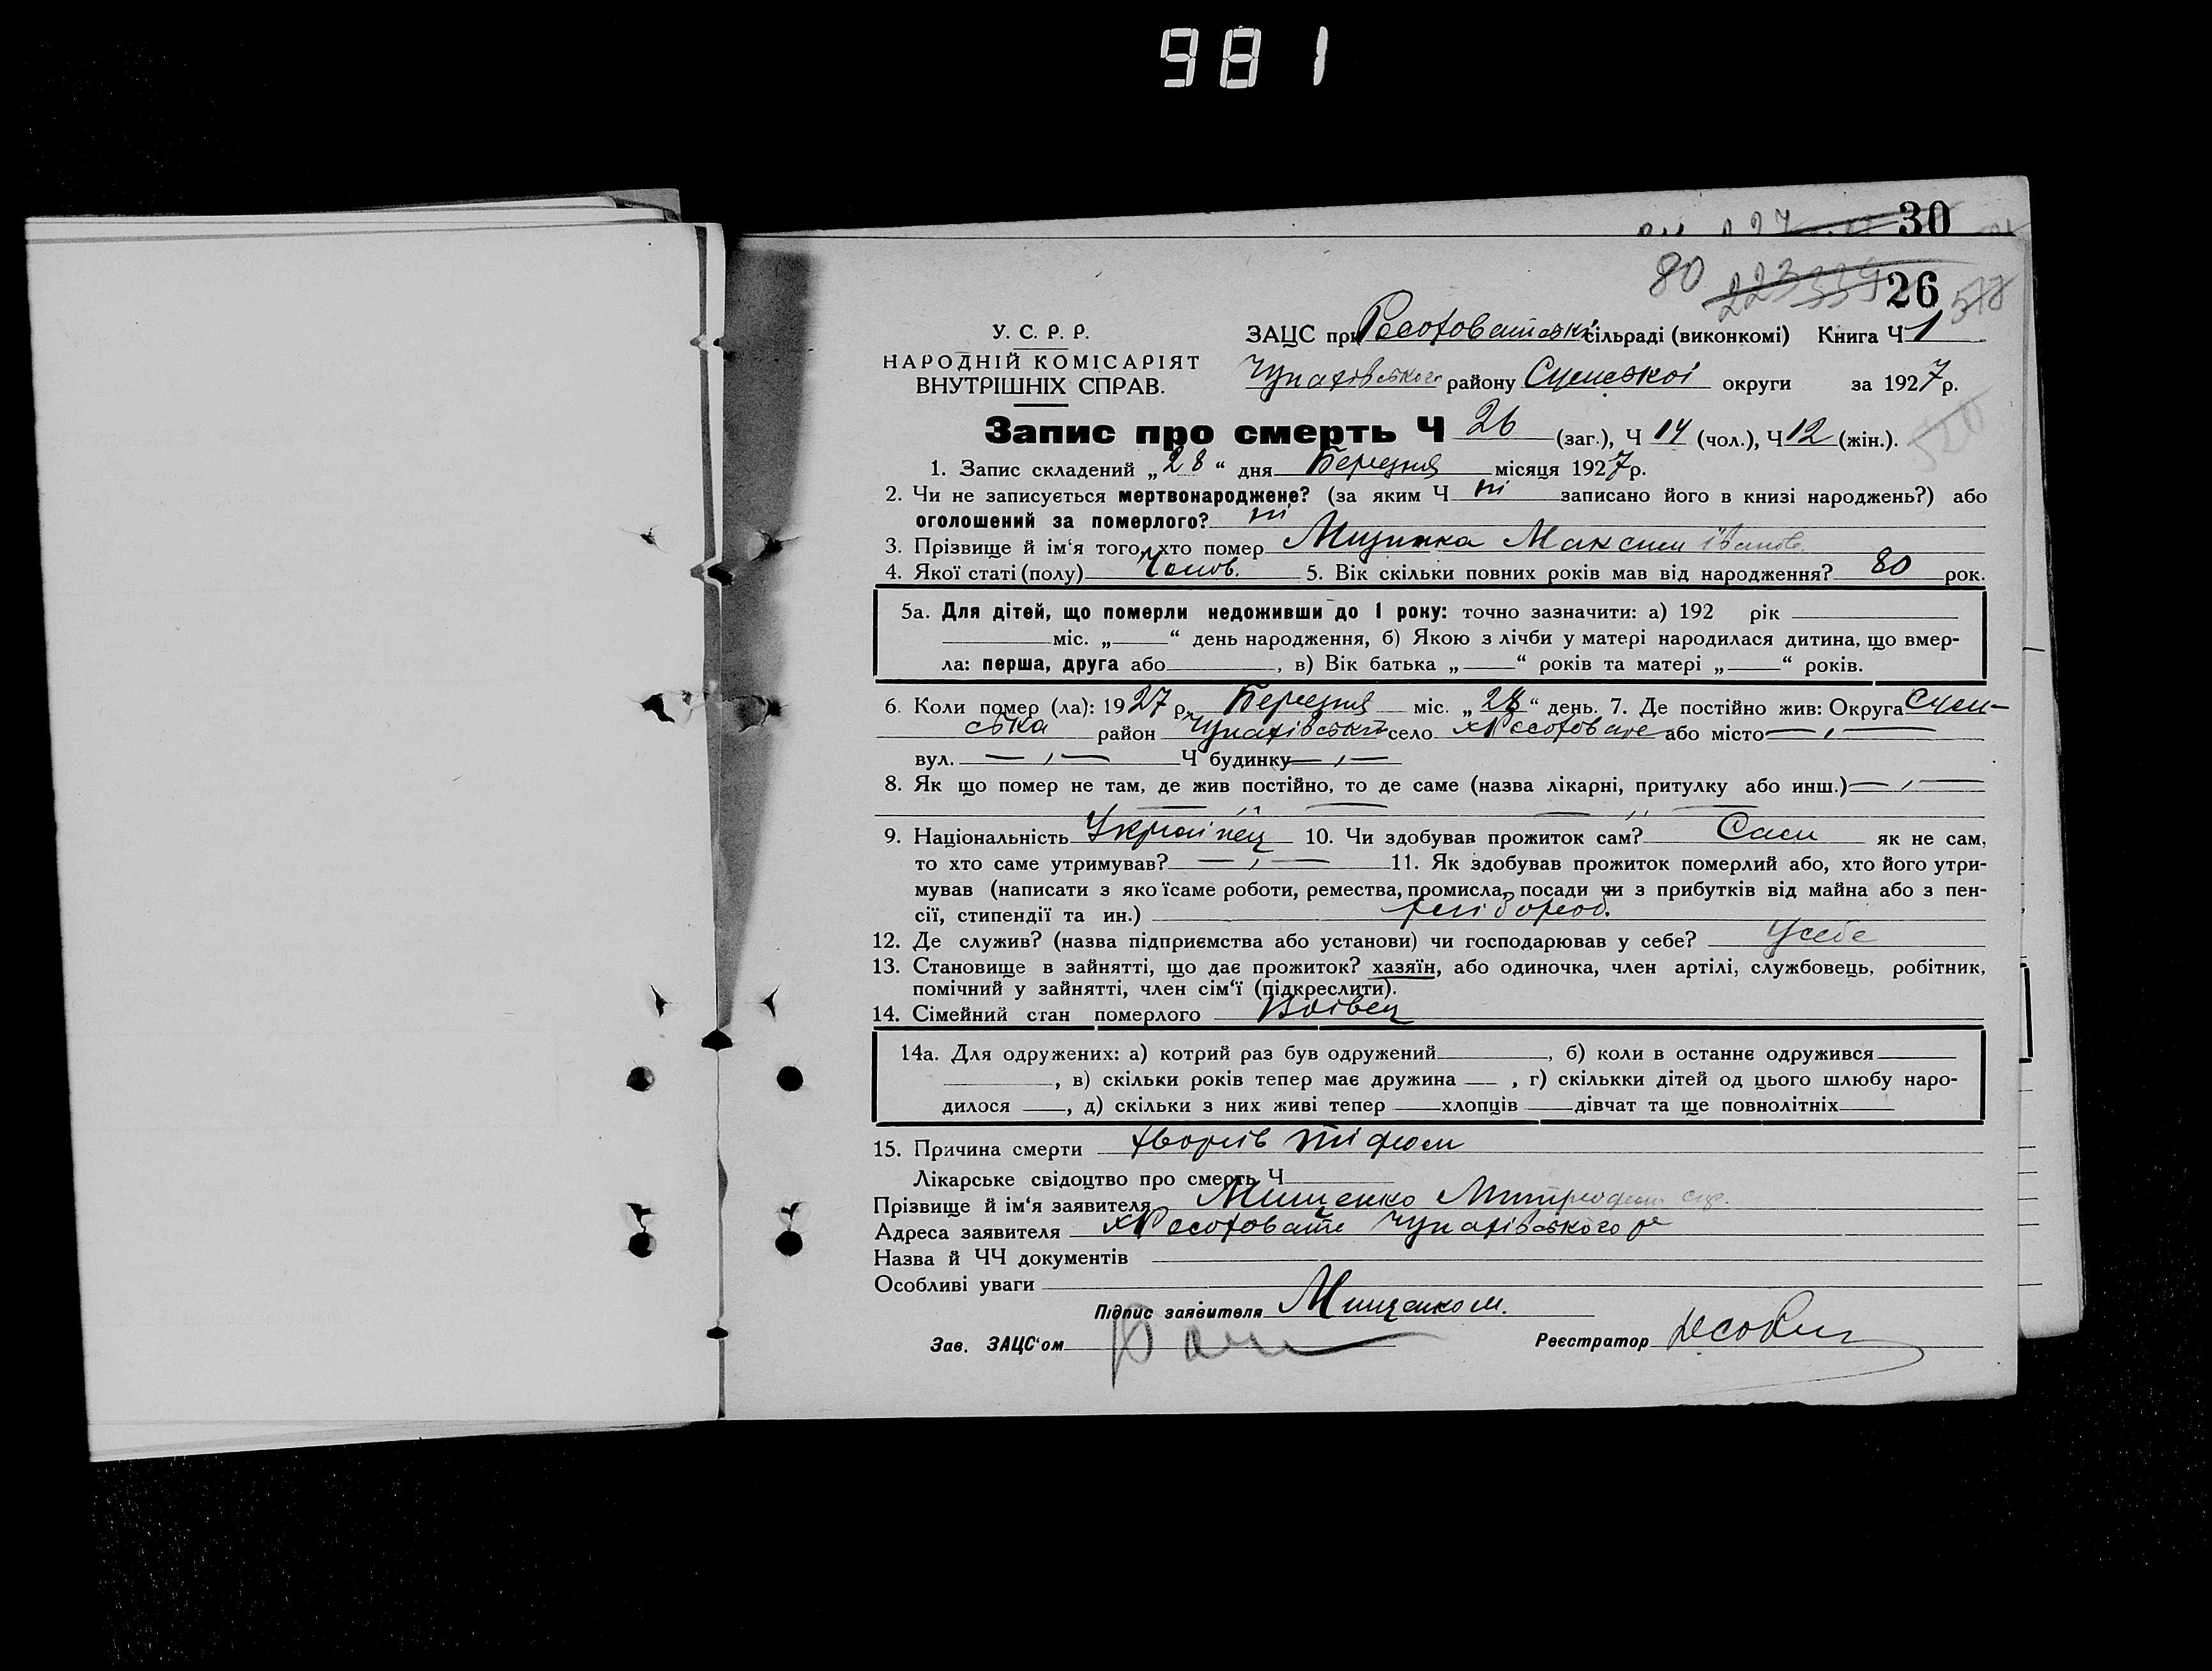 981
30
80 223 339 26 518
У. С. Р. Р.
НАРОДНІЙ КОМІСАРІЯТ
ВНУТРІШНІХ СПРАВ.
ЗАЦС при сільраді (виконкомі) Книга Ч 1
Чупахівського району Сумської округи за 1927 р.
520
Запис про смерть Ч 26 (заг.), Ч 14 (чол.), Ч 12 (жін.).
1. Запис складений „28“ дня Березня місяця 1927 р.
2. Чи не записується мертвонароджене? (за яким Ч ні записано його в книзі народжень?) або
оголошений за померлого? ні
3. Прізвище й ім‘я того, хто помер Максим Іванов.
4. Якої статі (полу) Чолов. 5. Вік скільки повних років мав від народження? 80 рок.
5а. Для дітей, що померли недоживши до 1 року: точно зазначити: а) 192 рік
міс. „ “ день народження, б) Якою з лічби у матері народилася дитина, що вмер-
ла: перша, друга або , в) Вік батька „ “ років та матері „ “ років.
6. Коли помер (ла): 1927 р. Березня міс. „28“ день. 7. Де постійно жив: Округа Сум-
ська район Чупахівський село або місто — „ —
вул. — „ — Ч будинку — „ —
8. Як що помер не там, де жив постійно, то де саме (назва лікарні, притулку або инш.) — „ —
— „ — — „ —
9. Національність Українец 10. Чи здобував прожиток сам? Сам як не сам,
то хто саме утримував? — „ — 11. Як здобував прожиток померлий або, хто його утри-
мував (написати з якоїсаме роботи, ремества, промисла, посади чи з прибутків від майна або з пен-
сії, стипендії та ин.) хлібороб.
12. Де служив? (назва підприємства або установи) чи господарював у себе? Усебе
13. Становище в зайнятті, що дає прожиток? хазяїн, або одиночка, член артілі, службовець, робітник,
помічний у зайнятті, член сім‘ї (підкреслити).
14. Сімейний стан померлого Вдівец
14а. Для одружених: а) котрий раз був одружений , б) коли в останнє одружився
, в) скільки років тепер має дружина , г) скількки дітей од цього шлюбу наро-
дилося , д) скільки з них живі тепер хлопців дівчат та ще повнолітніх
15. Причина смерти хворів тіфом
Лікарське свідоцтво про смерть Ч
Прізвище й ім‘я заявителя Мищенко
Адреса заявителя Чупахівського р
Назва й ЧЧ документів
Особливі уваги
Підпис заявителя Мищенко М.
Зав. ЗАЦС‘ом
Реєстратор